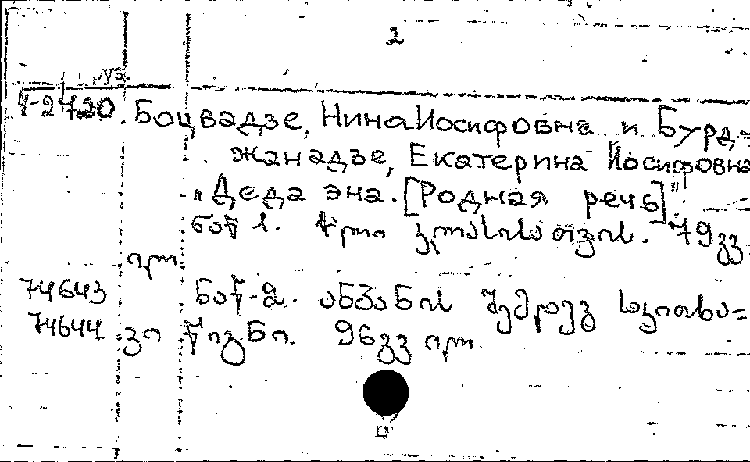 2
груз.
Ч-2420. Боцвадзе, Нина Иосифовна и Бурд-
жанадзе, Екатерина Иосифовна
"Деда эна. [Родная речь]"
ნაწ 1. კლასისათვის. 79გვ
74643 ნაწ-2. ანბანის შემდეგ საკითხა=
74644 ვი წიგნი. 96გვ